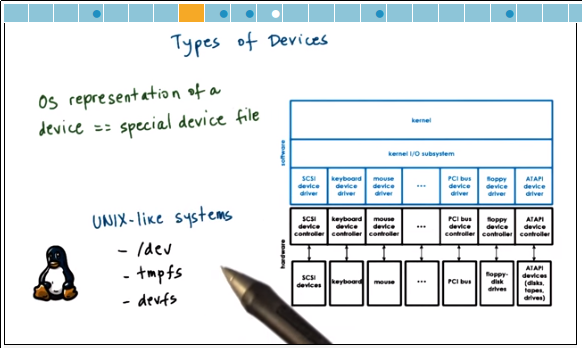 Types of Devices
OS representation of a
device == special device file
UNIX-like systems
- /dev
- tmpfs
- devfs
kernel
kernel I/O subsystem
software
SCSI device driver
keyboard device driver
mouse device driver
...
PCI bus device driver
floppy device driver
ATAPI device driver
hardware
SCSI device controller
keyboard device controller
mouse device controller
...
PCI bus device controller
floppy device controller
ATAPI device controller
SCSI devices
keyboard
mouse
...
PCI bus
floppy-disk drives
ATAPI devices (disks, tapes, drives)